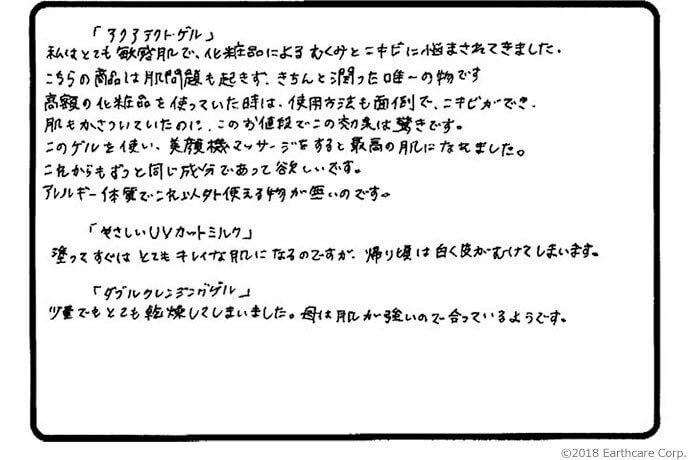 「アクアテクトゲル」
私はとても敏感肌で、化粧品によるむくみとニキビに悩まされてきました。
こちらの商品は肌問題も起きず、きちんと潤った唯一の物です
高額の化粧品を使っていた時は、使用方法も面倒で、ニキビができ、
肌もかさついていたのに、このお値段でこの効果は驚きです。
このゲルを使い、美顔機マッサージをすると最高の肌になれました。
これからもずっと同じ成分であって欲しいです。
アレルギー体質でこれ以外使える物が無いのです。
「やさしいUVカットミルク」
塗ってすぐはとてもキレイな肌になるのですが、帰り頃は白く皮がむけてしまいます。
「ダブルクレンジングゲル」
少量でもとても乾燥してしまいました。母は肌が強いので合っているようです。
©2018 Earthcare Corp.